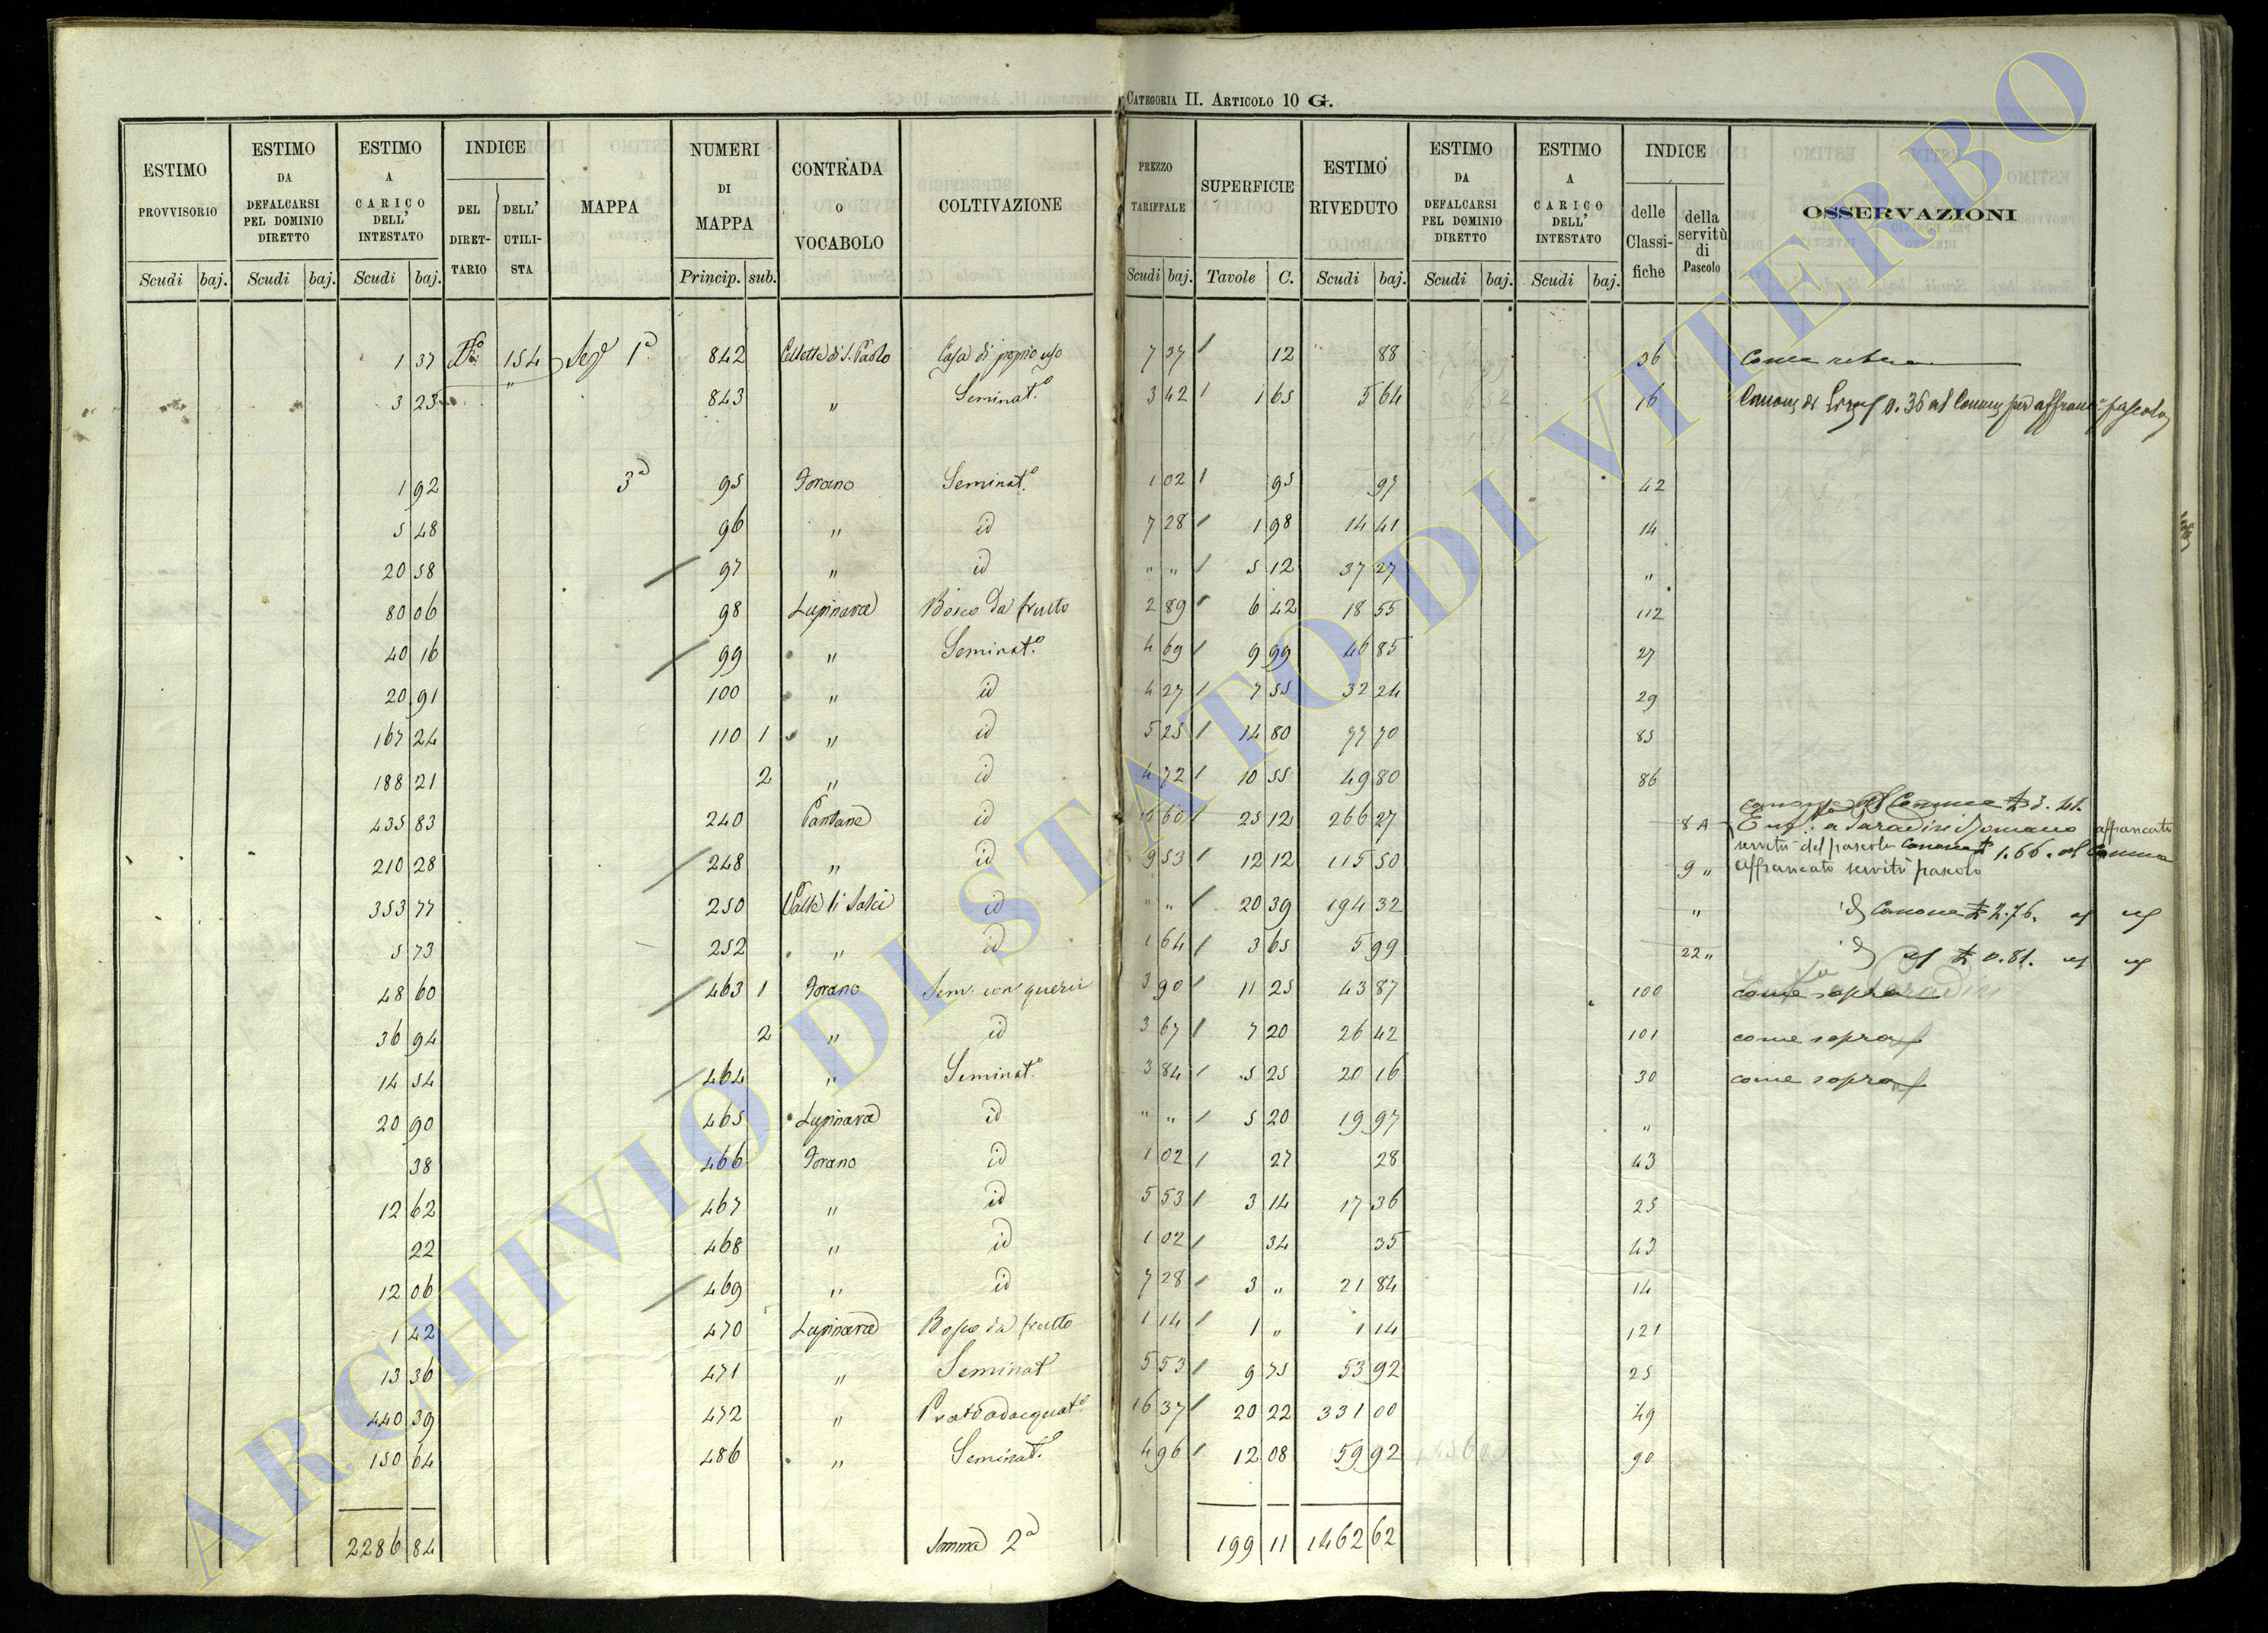 CATEGORIA II. ARTICOLO 10 G.
ESTIMO PROVVISORIO | ESTIMO DA DEFALCARSI PEL DOMINIO DIRETTO | ESTIMO A CARICO DELL' INTESTATO | INDICE DEL DIRETTARIO | DELL' UTILISTA | MAPPA | NUMERI DI MAPPA | CONTRADA O VOCABOLO | COLTIVAZIONE | PREZZO TARIFFALE | SUPERFICIE | ESTIMO RIVEDUTO | ESTIMO DA DEFALCARSI PEL DOMINIO DIRETTO | ESTIMO A CARICO DELL' INTESTATO | INDICE delle Classifiche | della servitù di Pascolo | OSSERVAZIONI
Scudi | baj. | Scudi | baj. | Scudi | baj. | Princip. | sub. | Scudi | baj. | Tavole | C. | Scudi | baj. | Scudi | baj. | Scudi | baj.
1 37 | 154 | Sez 1ª | 842 | Colletta di S. Paolo | Casa di proprio uso | 7 37 | 12 | 88 | 36 | Come
3 23 | " | 843 | " | Seminat.º | 3 42 | 1 65 | 5 64 | 16 | Canone di Lire 0.36 al Comune per affranc.e pascolo
1 92 | 3ª | 95 | Torano | Seminat.º | 1 02 | 95 | 97 | 42
5 48 | 96 | " | id | 7 28 | 1 98 | 14 41 | 14
20 58 | 97 | " | id | " " | 5 12 | 37 27 | "
80 06 | 98 | Lupinara | Bosco da frutto | 2 89 | 6 42 | 18 55 | 112
40 16 | 99 | " | Seminat.º | 4 69 | 9 99 | 46 85 | 27
20 91 | 100 | " | id | 4 27 | 7 55 | 32 24 | 29
167 24 | 110 | 1 | " | id | 5 25 | 14 80 | 77 70 | 85
188 21 | 2 | " | id | 4 72 | 10 55 | 49 80 | 86
canone al Comune £ 3.41.
435 83 | 240 | Pantane | id | 60 | 25 12 | 266 27 | 8 A | Enf.: a Saradini Romano affrancata
servitù del pascolo canone £ 1.66. al Comune
210 28 | 248 | " | id | 9 53 | 12 12 | 115 50 | 9 " | affrancato servitù pascolo
353 77 | 250 | Valle li Salci | id | " " | 20 39 | 194 32 | " | id Canone £ 2.76. id id
5 73 | 252 | " | id | 1 64 | 3 65 | 5 99 | 22 " | id id £ 0.81. id id
48 60 | 463 | 1 | Torano | Sem. con querci | 3 90 | 11 25 | 43 87 | 100 | come sopra
36 94 | 2 | " | id | 3 67 | 7 20 | 26 42 | 101 | come sopra
14 54 | 464 | " | Seminat.º | 3 84 | 5 25 | 20 16 | 30 | come sopra
20 90 | 465 | Lupinara | id | " " | 5 20 | 19 97 | "
38 | 466 | Torano | id | 1 02 | 27 | 28 | 43
12 62 | 467 | " | id | 5 53 | 3 14 | 17 36 | 25
22 | 468 | " | id | 1 02 | 34 | 35 | 43
12 06 | 469 | " | id | 7 28 | 3 " | 21 84 | 14
1 42 | 470 | Lupinara | Bosco da frutto | 1 14 | 1 " | 1 14 | 121
13 36 | 471 | " | Seminat | 5 53 | 9 75 | 53 92 | 25
440 39 | 472 | " | Prato adacquat.º | 16 37 | 20 22 | 331 00 | 49
150 64 | 486 | " | Seminat.º | 4 96 | 12 08 | 59 92 | 90
2286 84 | Somma 2ª | 199 11 | 1462 62
ARCHIVIO DI STATO DI VITERBO